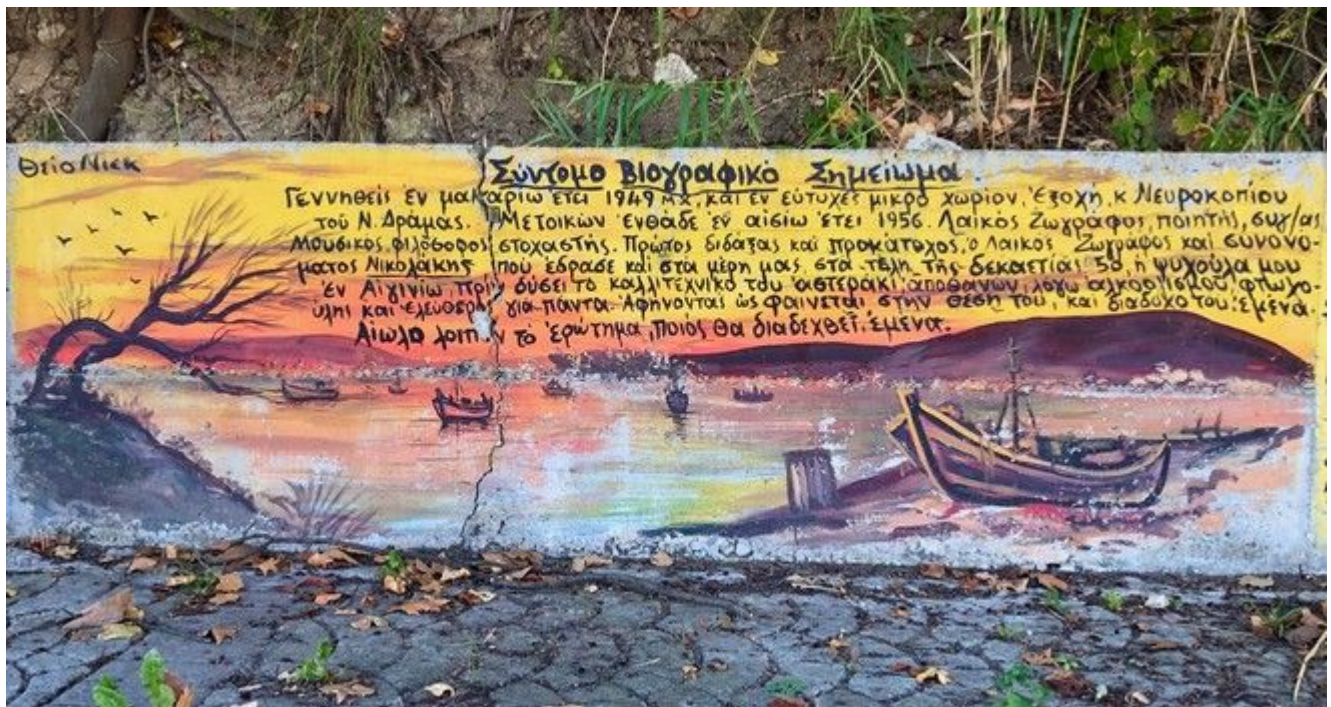 Θείο Νίεκ
Σύντομο Βιογραφικό Σημείωμα.
Γεννηθείς έν μακαρίω έτει 1949 μ.χ, και έν εύτυχες μικρό χωρίον, Έξοχή, κ Νευροκοπίου
τού Ν. Δράμας. Μετοικών ένθάδε έν αισίω έτει 1956. Λαϊκός Ζωγράφος, ποιητής, συχ/ας
Μουσικός, φιλόσοφος στοχαστής. Πρώτος διδάξας και προκάτοχος, ο Λαικός Ζωγράφος και συνονο-
ματος Νικολάκης πού έδρασε και στα μέρη μας στα τέλη της δεκαετίας 50, ή ψυχούλα μου
έν Αίγινίω πρίν δύσει το καλλιτεχνικό του άστεράκι άποθανών λόγω άλκοολισμού, φτωχο-
ύλης και έλεύθερος γιά πάντα. Αφήνοντας ώς φαίνεται στην θέση του, και διάδοχο του έμένα.
Αίωλο λοιπόν τό έρώτημα, ποιός θα διαδεχθεί έμένα.